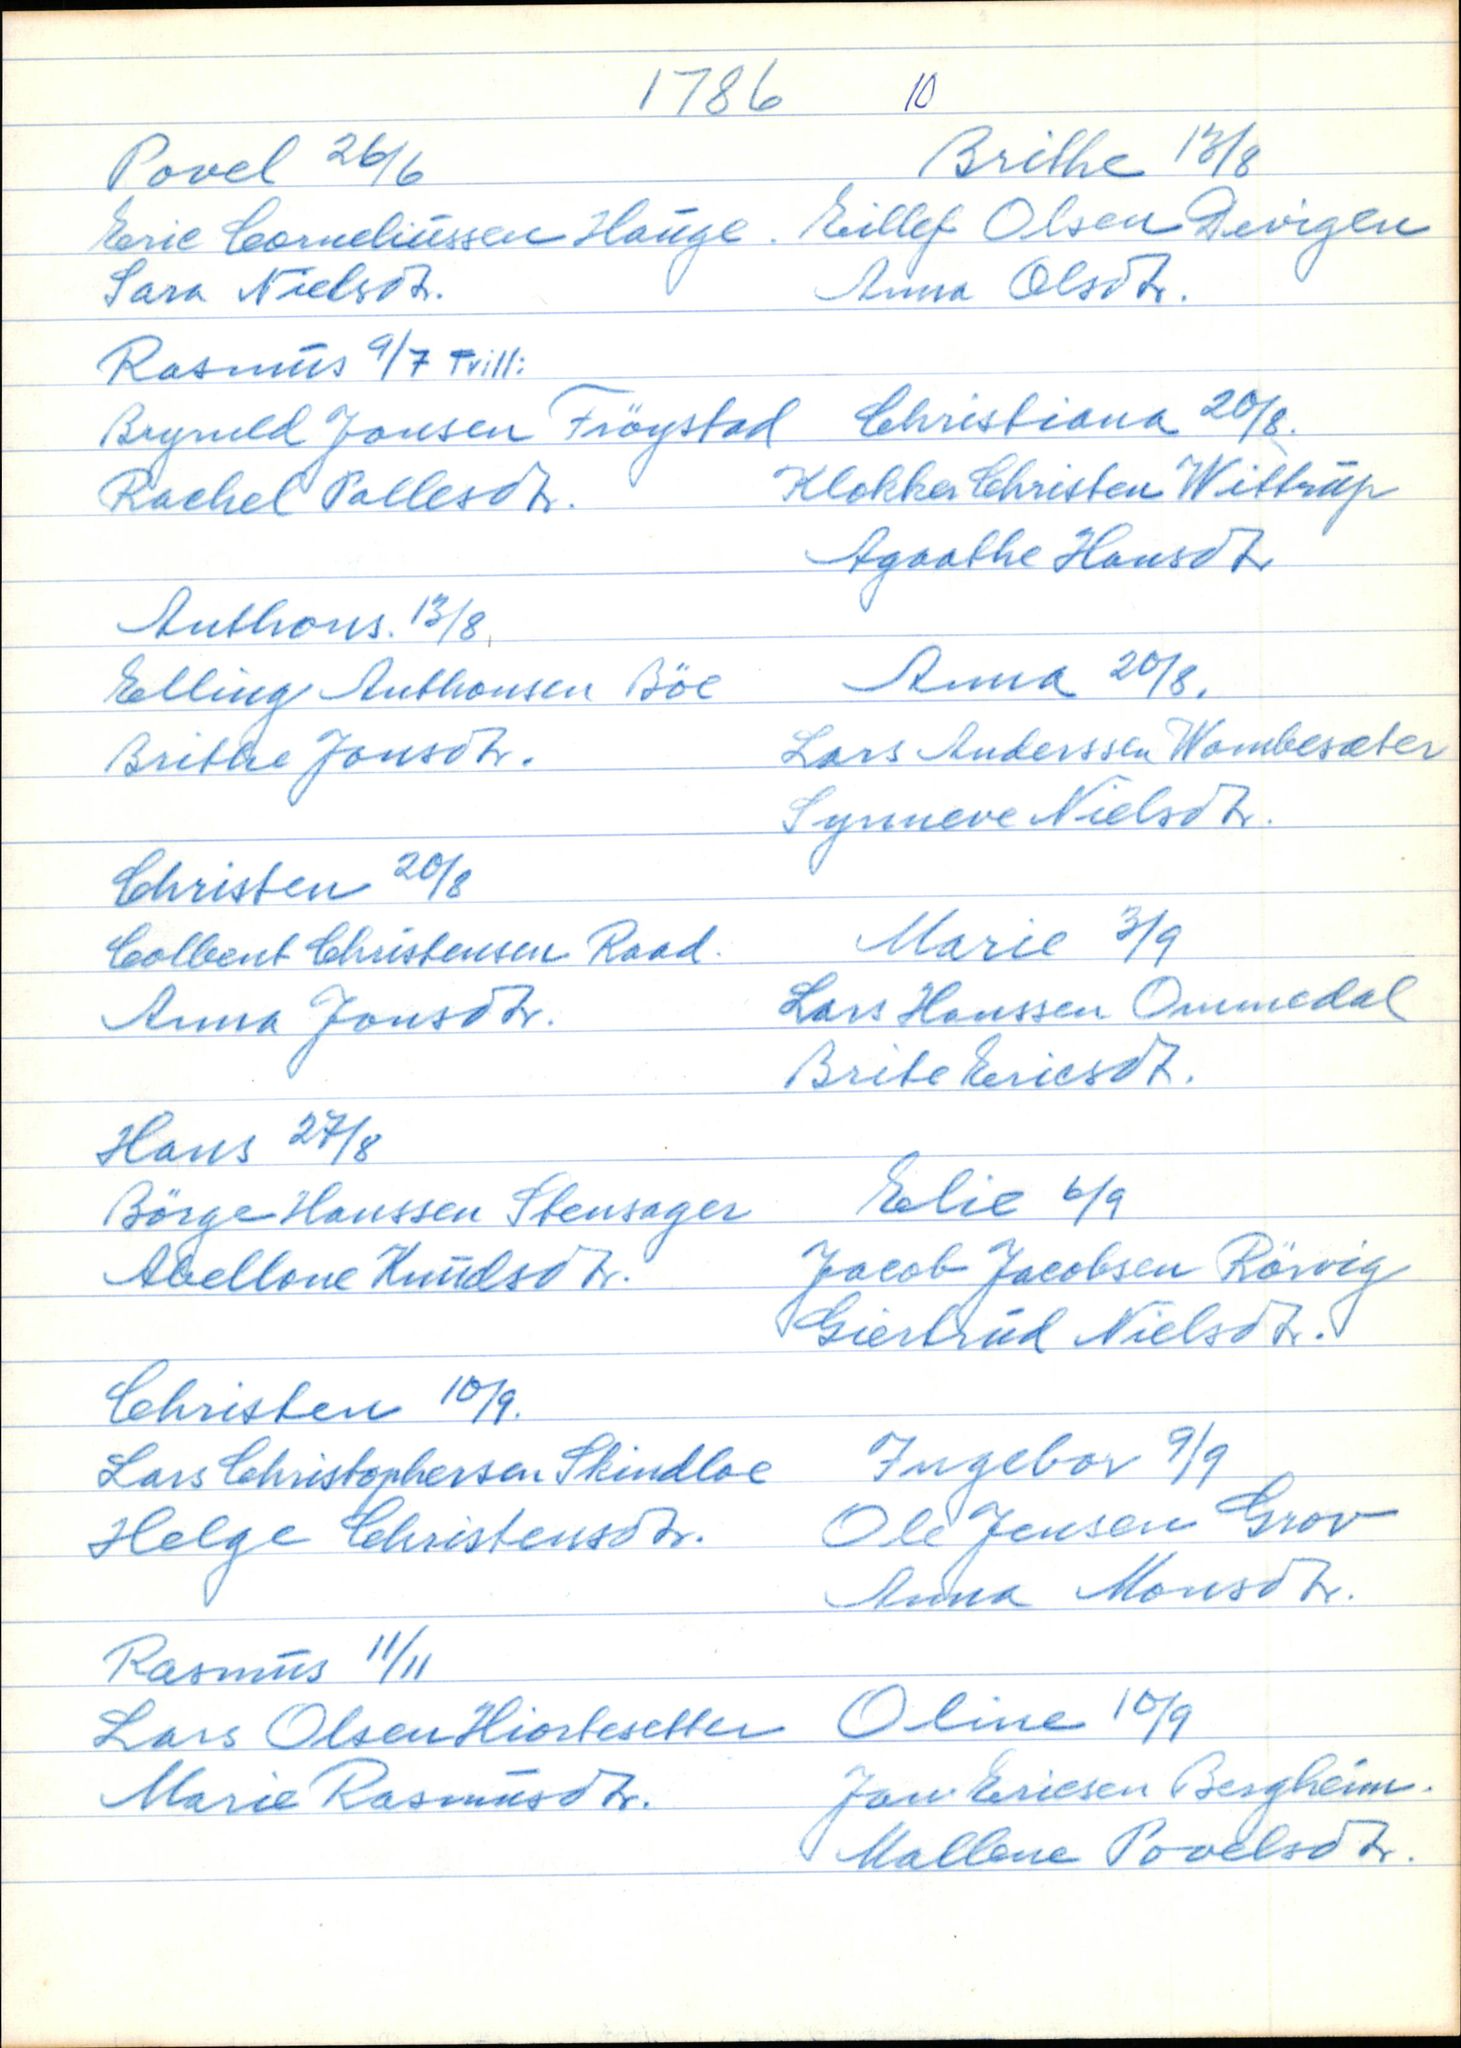 1786 10
Povel 26/6
Eric Corneliussen Hauge.
Sara Nielsdtr.
Rasmus 9/7 Trill:
Bryneld Jonsen Fröystad
Rachel Pallesdtr.
Anthons. 13/8
Elling Anthonsen Böe
Brithe Jonsdtr.
Christen 20/8
Colbent Christensen Raad.
Anna Jonsdtr.
Hans 27/8
Börge Hanssen Stensager
Abellone Knudsdtr.
Christen 10/9.
Lars Christophersen Skindloe
Helge Christensdtr.
Rasmus 11/11
Lars Olsen Hiortesetter
Marie Rasmusdtr.
Brithe 13/8
Eillef Olsen Devigen
Anna Olsdtr.
Christiana 20/8.
Klokker Christen Wittrup
Agaathe Hansdtr
Anna 20/8.
Lars Anderssen Wambesæter
Synneve Nielsdtr.
Marie 3/9
Lars Hanssen Ommedal
Brite Ericsdt.
Elie 6/9
Jacob Jacobsen Rörvig
Giertrud Nielsdtr.
Ingebor 9/9
Ole Jensen Grov
Anna Monsdtr.
Oline 10/9
Jon Ericsen Bergheim.
Mallene Povelsdtr.